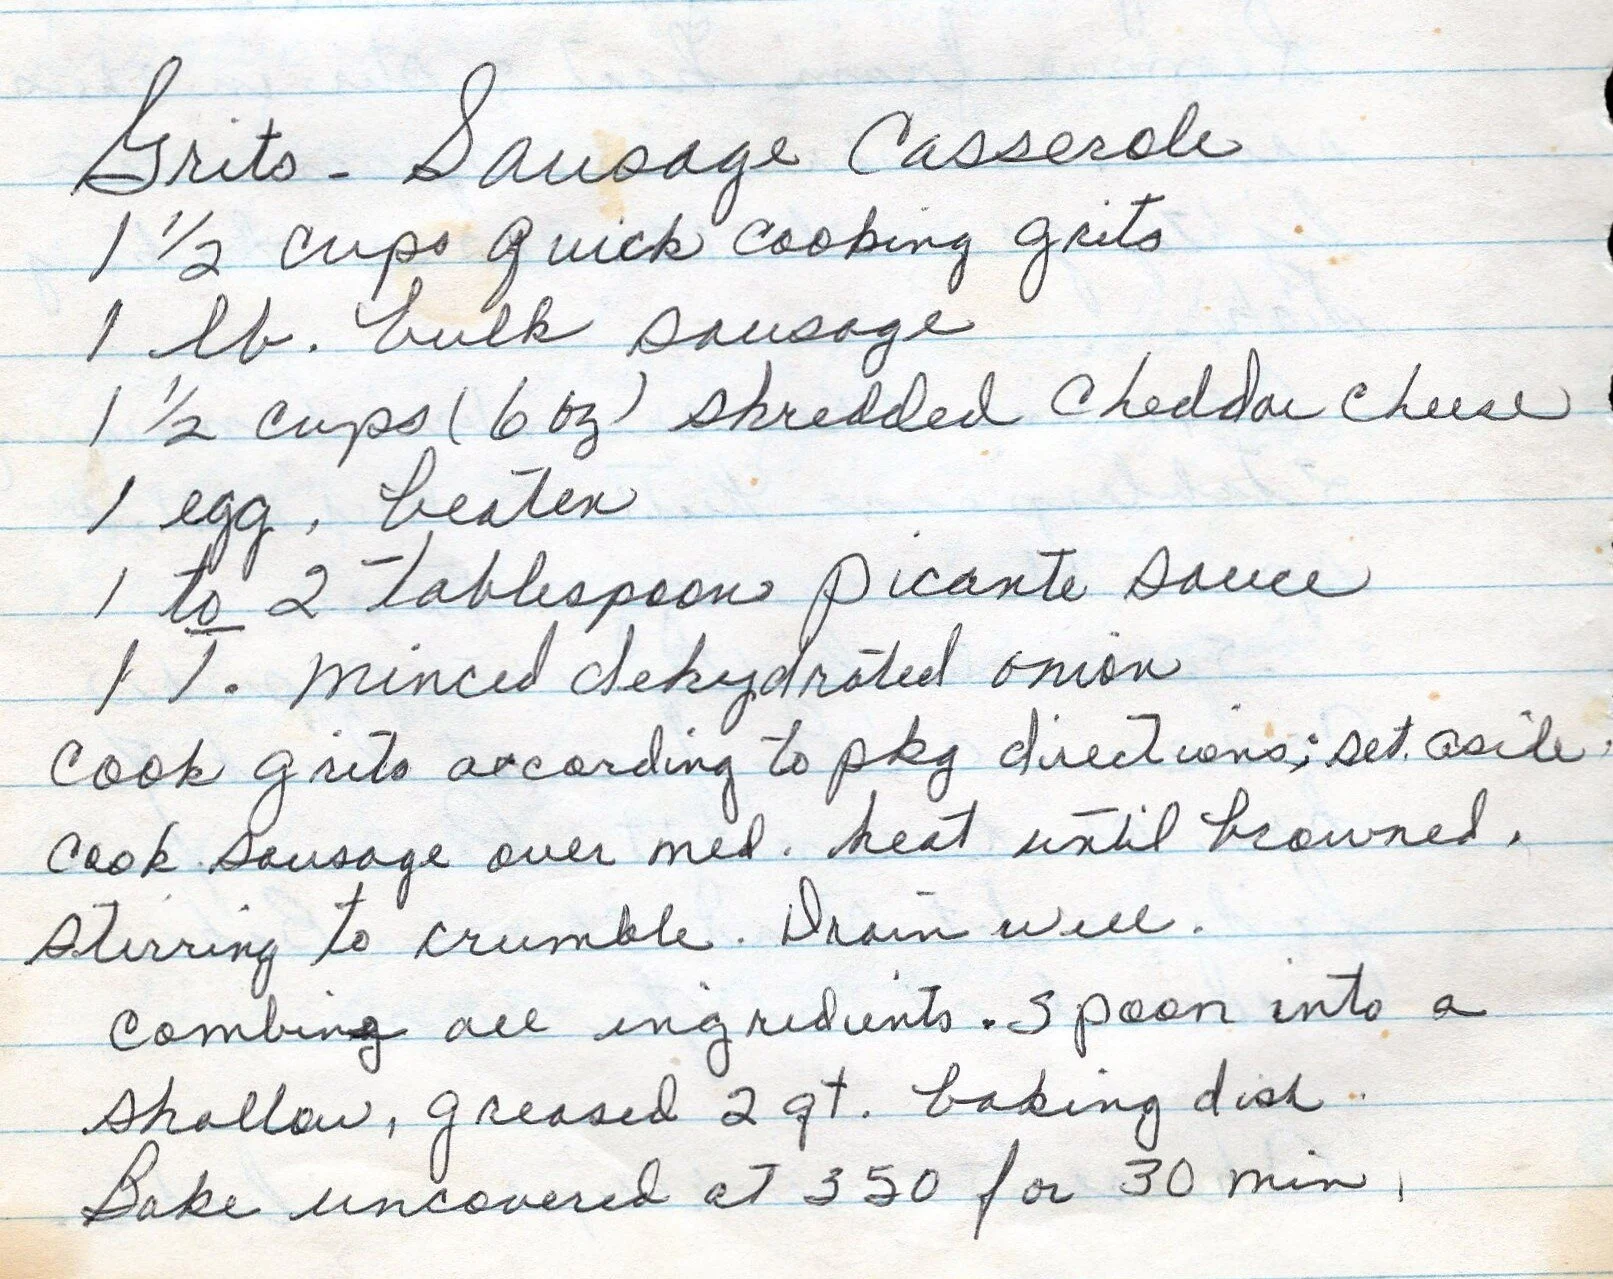 Grits - Sausage Casserole
1 1/2 cups quick cooking grits
1 lb. bulk sausage
1 1/2 cups (6 oz) shredded cheddar cheese
1 egg, beaten
1 to 2 tablespoons picante sauce
1 T. minced dehydrated onion
Cook grits according to pkg directions; set aside.
Cook sausage over med. heat until browned,
stirring to crumble. Drain well.
Combing all ingredients. Spoon into a
shallow, greased 2 qt. baking dish.
Bake uncovered at 350 for 30 min.